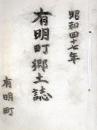 昭和四十七年
有明町郷土誌
有明町